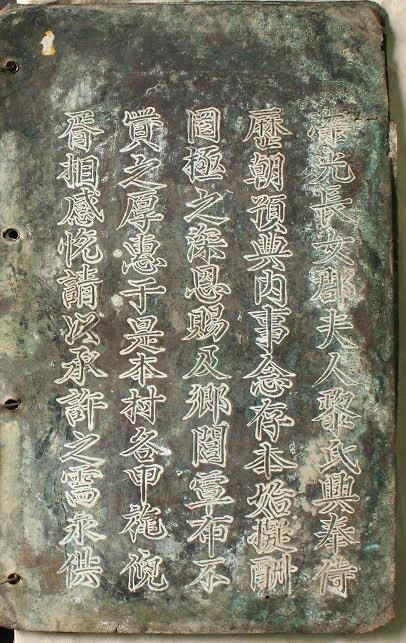 光長女郡夫人黎氏興奉侍
歷朝預典内事念存本始擬酬
罔極之深恩賜及鄉閭宣布不
貲之厚惠于是本村各甲旄倪
胥相感悅請以承許之需永供